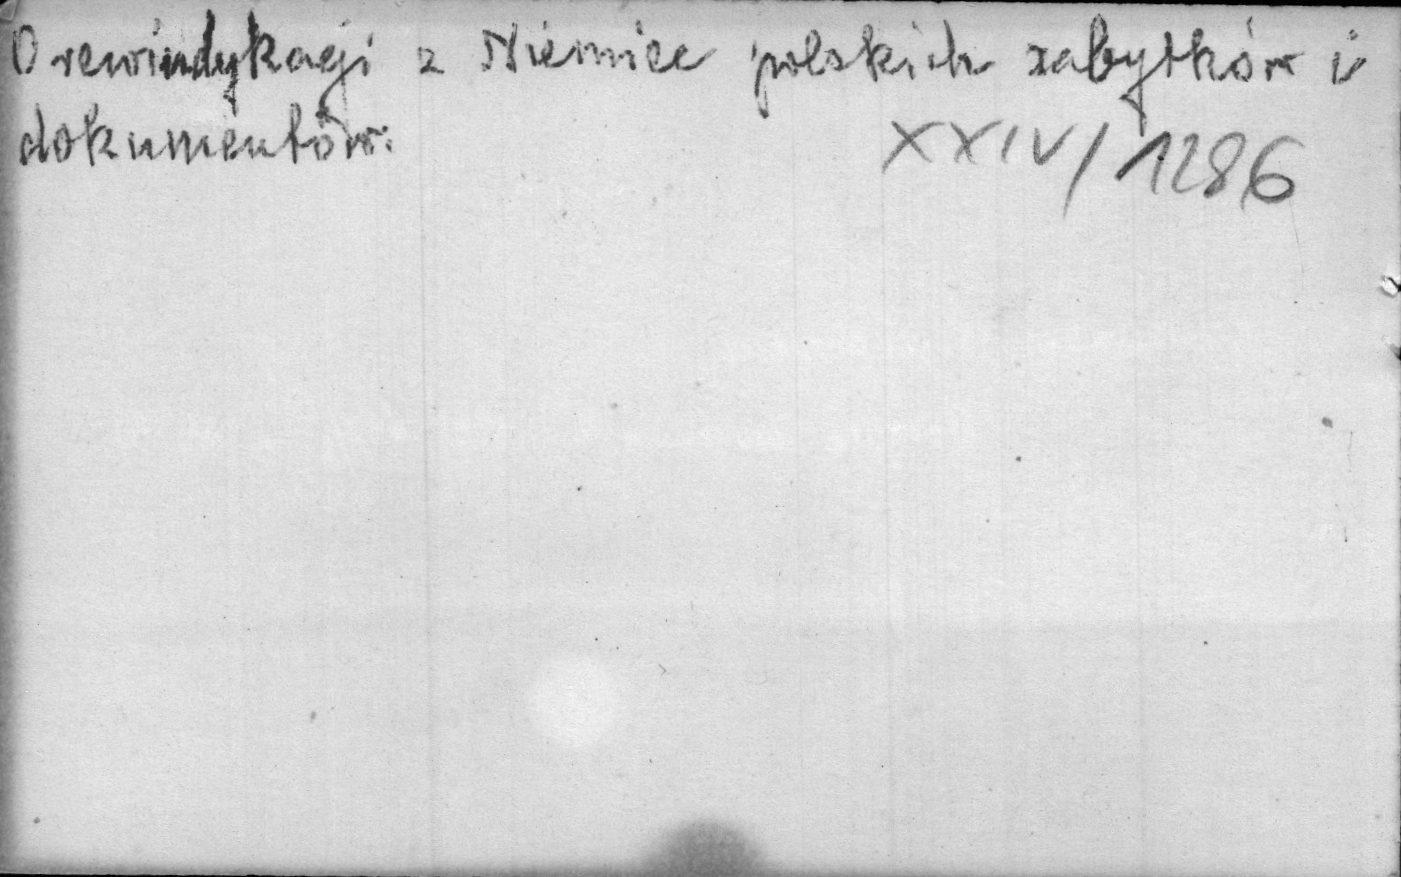 O rewindykacji z Niemiec polskich zabytków i
dokumentów.
XXIV/1286